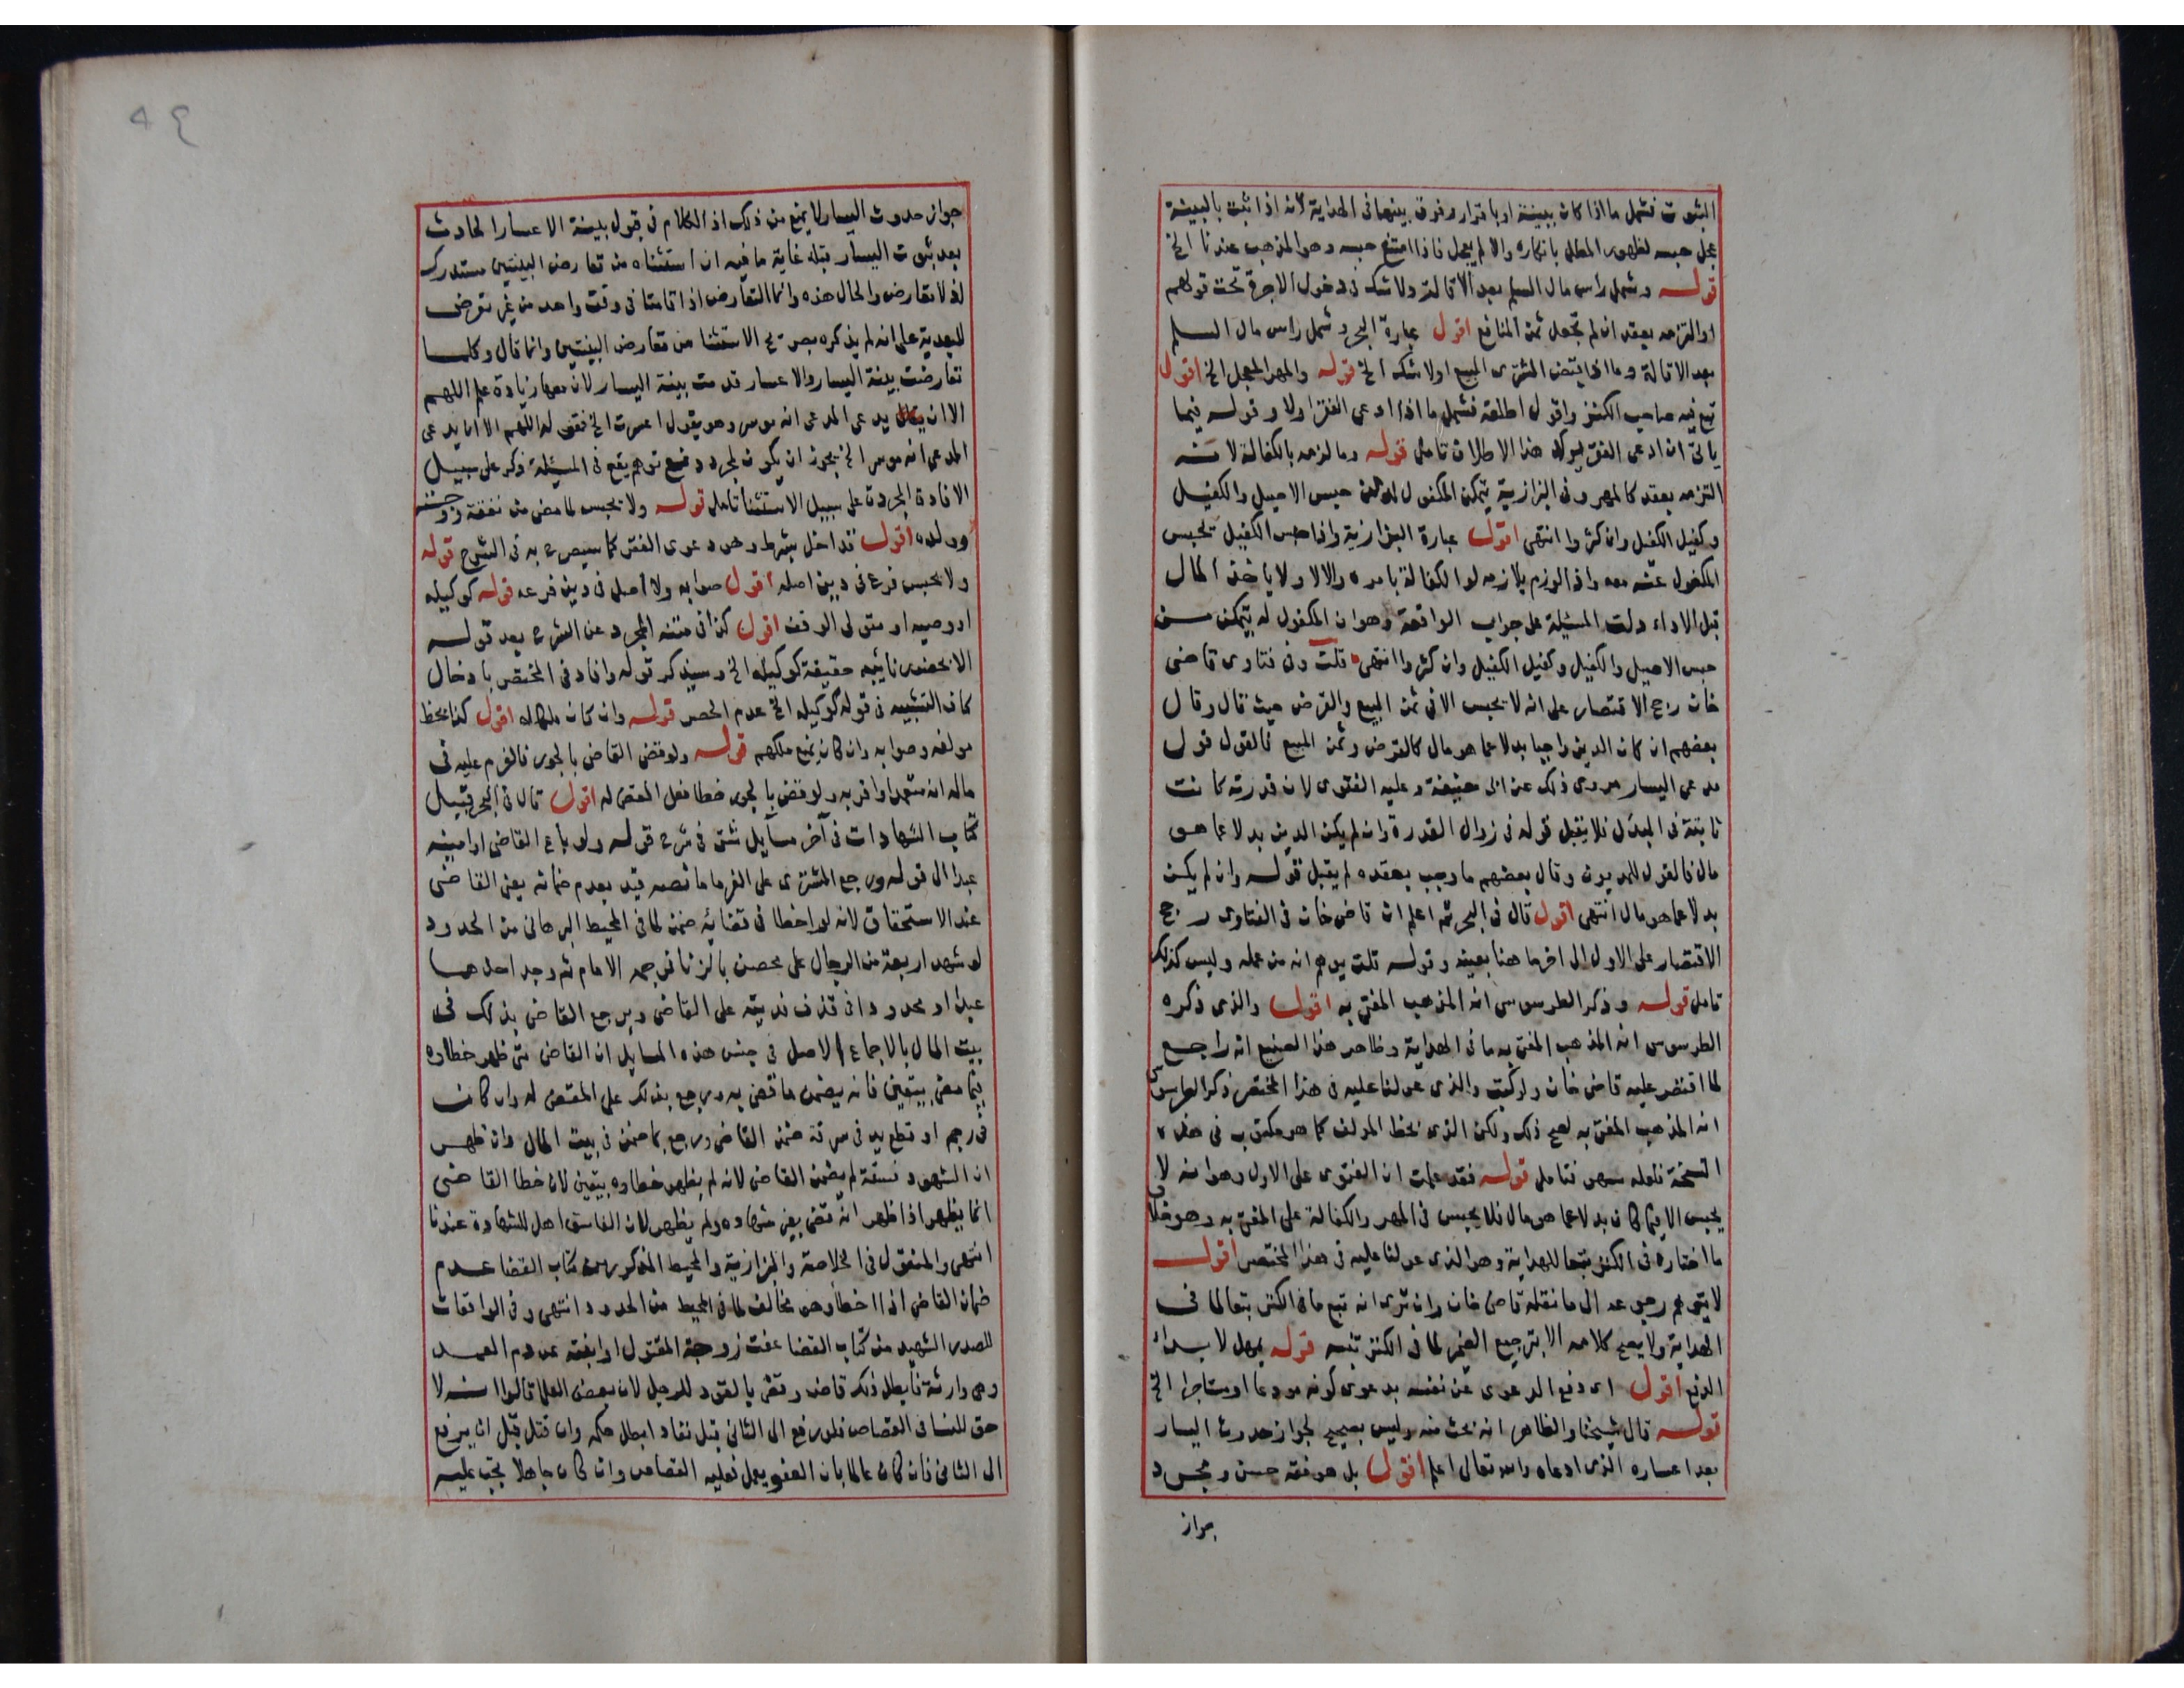 الثبوت فشمل ما اذا كان ببينة او باقرار وفرق بينهما فى الهداية لانه اذا ثبت بالبينة
عجل حبسه لظهور المطل بانكاره والا لم يعجل فاذا امتنع حبسه وهو المذهب عندنا الخ
قوله وشمل رأس مال السلم بعد الاقالة ولا شك فى دخول الاجرة تحت قولهم
او التزمه بعقد ان لم تجعل ثمن المنافع اقول عبارة البحر وشمل راس مال السلم
بعد الاقالة وما اذا قبض المشترى المبيع اولا شك الخ قوله والمهر المعجل الخ اقول
تبع فيه صاحب الكنز واقول اطلقه فشمل ما اذا ادعى الفقر اولا وقوله فيما
ياتى ان ادعى الفقر يوكد هذا الاطلاق تامل قوله وما لزمه بالكفالة لانه
التزمه بعقد كالمهر وفى البزازية يتمكن المكفول له من حبس الاصيل والكفيل
وكفيل الكفيل وان كثروا انتهى اقول عبارة البزازية واذا حبس الكفيل يحبس
المكفول عنه معه واذا لوزم يلازمه لو الكفالة بامره والا لا ولا ياخذ المال
قبل الاداء دلت المسئلة على جواب الواقعة وهو ان المكفول له يتمكن من
حبس الاصيل والكفيل وكفيل الكفيل وان كثروا انتهى قلت وفى فتاوى قاضى
خان رجح الاقتصار على انه لا يحبس الا فى ثمن المبيع والقرض حيث قال وقال
بعضهم ان كان الدين واجبا بدلا عما هو مال كالقرض وثمن المبيع فالقول قول
مدعى اليسار مروى ذلك عن ابى حنيفة وعليه الفتوى لان قدرته كانت
ثابتة فى المبدل فلا يقبل قوله فى زوال القدرة وان لم يكن الدين بدلا عما هو
مال فالقول للمديون وقال بعضهم ما وجب بعقده لم يقبل قوله وان لم يكن
بدلا عما هو مال انتهى اقول قال فى البحر ثم اعلم ان قاضى خان فى الفتاوى رجح
الاقتصار على الاول الى اخر ما هنا بعينه وقوله قلت يوهم انه من عمله وليس كذلك
تامل قوله وذكر الطرسوسى انه المذهب المفتى به اقول والذى ذكره
الطرسوسى انه المذهب المفتى به ما فى الهداية وظاهر هذا الصنيع انه راجع
لما اقتصر عليه قاضى خان ولو كتب والذى عولنا عليه فى هذا المختصر ذكر الطرسوسى
انه المذهب المفتى به لصح ذلك ولكن الذى بخط المولف كما هو مكتوب فى هذه
النسخة فلعله سهو فتامل قوله فقد علمت ان الفتوى على الاول وهو انه لا
يحبس الا فيما كان بدلا عما هو مال فلا يحبس فى المهر والكفالة على المفتى به وهو خلاف
ما اختاره فى الكنز تبعا للهداية وهو الذى عولنا عليه فى هذا المختصر اقول
لا يتوهم رجوعه الى ما نقله قاضى خان وان ترى انه تبع ما فى الكنز تبعا لما فى
الهداية ولا يصح كلامه الا بترجيع الضمير لما فى الكنز تنبه قوله يمهل لابداء
الدفع اقول اى دفع الدعوى عن نفسه بدعوى كونه مودعا او مستاجرا الخ
قوله قال شيخنا والظاهر انه بحث منه وليس بصحيح لجواز حدوث اليسار
بعد اعساره الذى ادعاه والله تعالى اعلم اقول بل هو فقه حسن ومجرد
جواز
جواز حدوث اليسار لا يمنع من ذلك اذ الكلام فى قبول بينة الاعسار الحادث
بعد ثبوت اليسار قبله غاية ما فيه ان استثناه من تعارض البينتين مستدرك
اذ لا تعارض والحال هذه وانما التعارض اذا قامتا فى وقت واحد من غير تعرض
للبعدية على انه لم يذكره بصريح الاستثنا من تعارض البينتين وانما قال وكلما
تعارضت بينة اليسار والاعسار قدمت بينة اليسار لان معها زيادة علم اللهم
الا ان يدعى المدعى انه موسر وهو يقول اعسرت الخ فقوله اللهم الا ان يدعى
المدعى انه موسر الخ يجوز ان يكون لمجرد دفع توهم يقع فى المسئلة ذكر على سبيل
الافادة المجردة على سبيل الاستثنا تامل قوله ولا يحبس لما مضى من نفقة زوجته
وولده اقول قد اخل بشرط وهو دعوى الفقر كما سيصرح به فى الشرح قوله
ولا يحبس فرع فى دين اصله اقول صوابه ولا اصل فى دين فرعه قوله كوكيله
او وصيه او متولى الوقف اقول كذا فى متنه المجرد عن الشرح بعد قوله
الا بحضور نائبه حقيقة كوكيله الخ وسيذكر قوله وافاد فى المختصر بادخال
كاف التشبيه فى قوله كوكيله الخ عدم الحصر قوله وان كان ملكا له اقول كذا بخط
مولفه وصوابه وان كان يمنع ملكهم قوله ولو قضى القاضى بالجور فالغرم عليه فى
ماله ان متعمدا واقر به ولو قضى بالجور خطا فعلى المقضى له اقول قال فى البحر قبيل
كتاب الشهادات فى آخر مسايل شتى فى شرح قوله ولو باع القاضى او امينه
عبدا الى قوله ورجع المشترى على الغرما ما نصه قيد بعدم ضمانه يعنى القاضى
عند الاستحقاق لانه لو اخطا فى قضائه ضمن لما فى المحيط البرهانى من الحدود
لو شهد اربعة من الرجال على محصن بالزنا فرجمه الامام ثم وجد احدهما
عبدا او محدودا فى قذف فديته على القاضى ويرجع القاضى بذلك فى
بيت المال بالاجماع الاصل فى جنس هذه المسايل ان القاضى متى ظهر خطاوه
فيما مضى بيقين فانه يضمن ما قضى به ويرجع بذلك على المقضى له وان كان
فى رجم او قطع يد فى سرقة ضمن القاضى ورجع بما ضمن فى بيت المال وان ظهر
ان الشهود فسقة لم يضمن القاضى لانه لم يظهر خطاوه بيقين لان خطا القاضى
انما يظهر اذا ظهر انه قضى بغير شهاده ولم يظهر لان الفاسق اهل للشهادة عندنا
انتهى والمنقول فى الخلاصة والبزازية والمحيط المذكور من كتاب القضا عدم
ضمان القاضى اذا اخطا وهو مخالف لما فى المحيط من الحدود انتهى وفى الواقعات
للصدر الشهيد من كتاب القضا عفت زوجة المقتول او ابنته عن دم العمد
وهى وارثة فابطل ذلك قاض وقضى بالقود للرجل لان بعض العلما قالوا انه لا
حق للنسا فى القصاص فلو رفع الى الثانى قبل نفاد ابطل حكمه وان قتل قبل ان يرفع
الى الثانى فان كان عالما بان العفو يعمل فعليه القصاص وان كان جاهلا تجب عليه